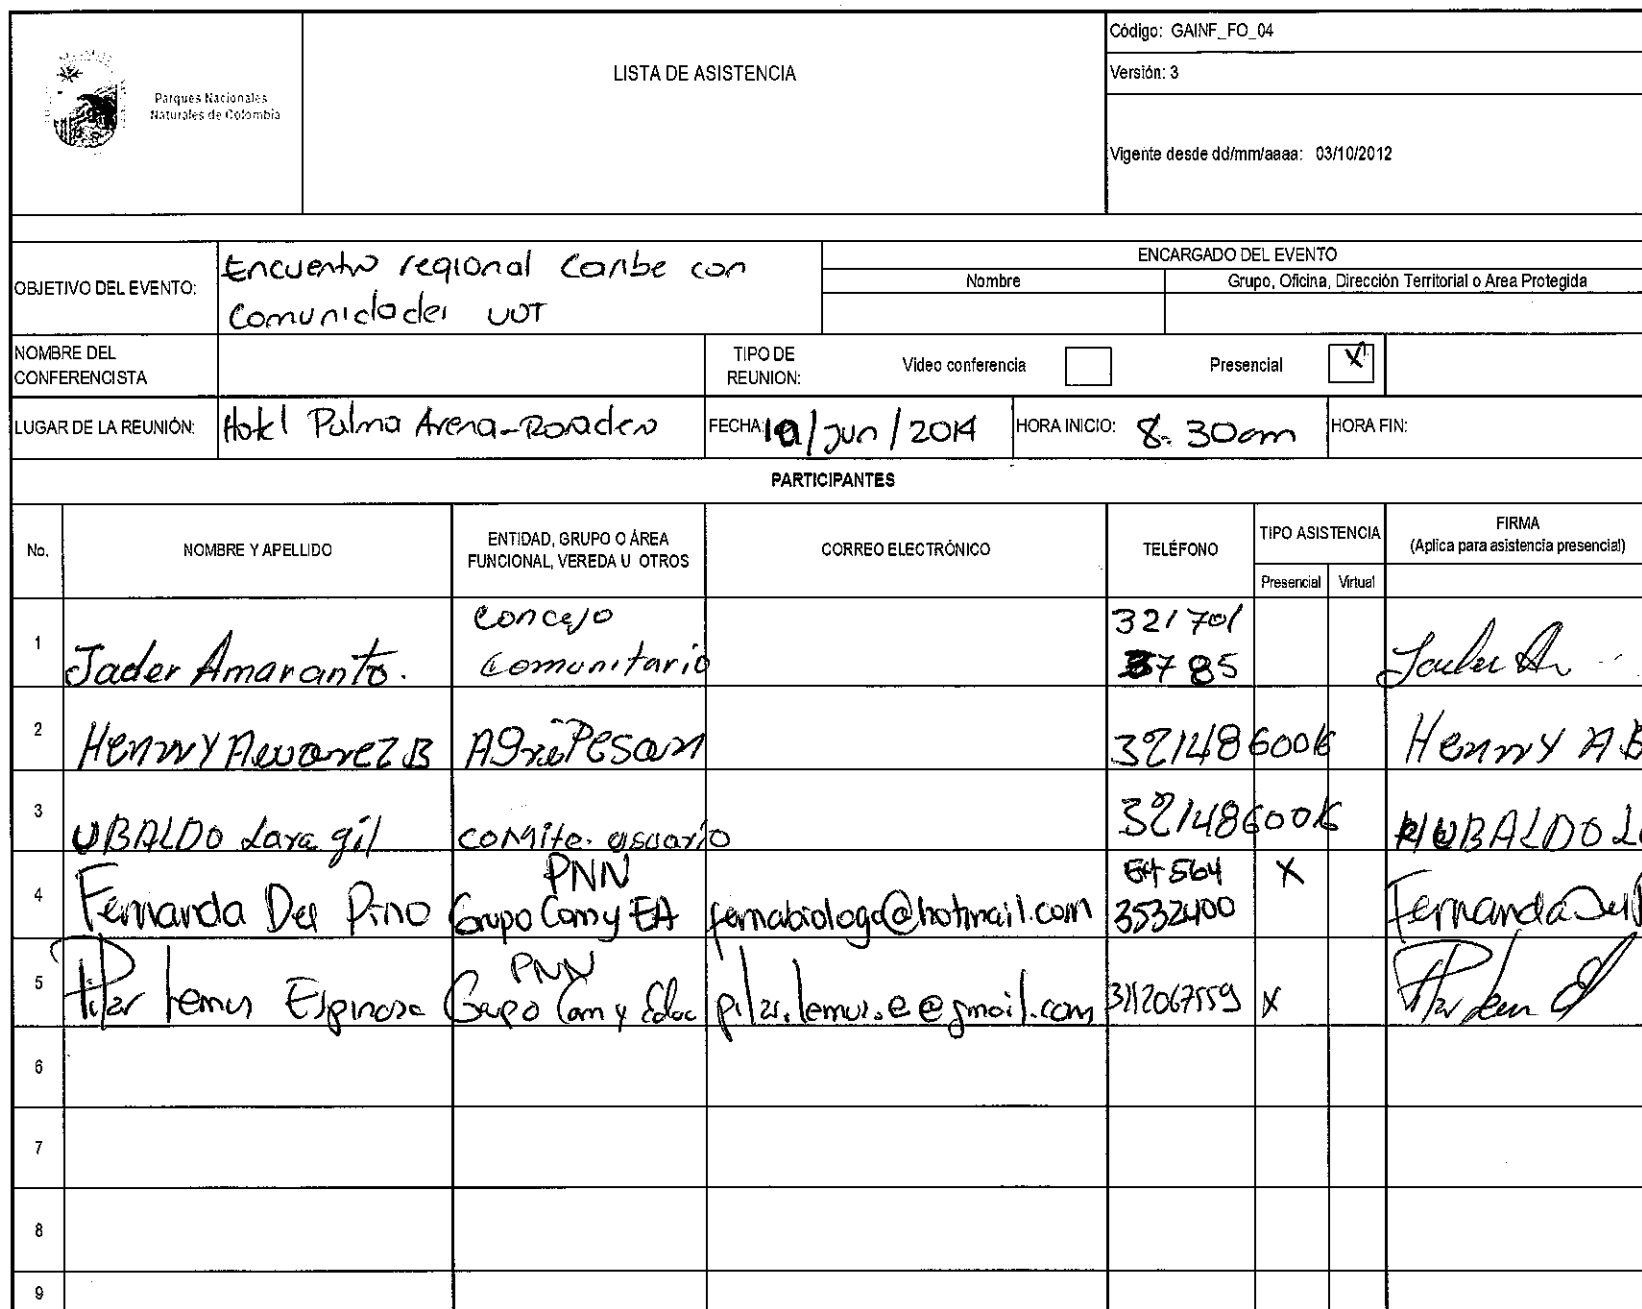 Parques Nacionales
Naturales de Colombia
LISTA DE ASISTENCIA
Código: GAINF_FO_04
Versión: 3
Vigente desde dd/mm/aaaa: 03/10/2012
OBJETIVO DEL EVENTO:
Encuentro regional Caribe con
Comunidades UOT
ENCARGADO DEL EVENTO
Nombre
Grupo, Oficina, Dirección Territorial o Area Protegida
NOMBRE DEL
CONFERENCISTA
TIPO DE
REUNION:
Video conferencia
Presencial X
LUGAR DE LA REUNIÓN: Hotel Palma Arena-Rodadero
FECHA: /Jun/2014
HORA INICIO: 8:30am
HORA FIN:
PARTICIPANTES
No.
NOMBRE Y APELLIDO
ENTIDAD, GRUPO O ÁREA
FUNCIONAL, VEREDA U OTROS
CORREO ELECTRÓNICO
TELÉFONO
TIPO ASISTENCIA
Presencial Virtual
FIRMA
(Aplica para asistencia presencial)
1 Jader Amaranto.
Concejo
Comunitario
321701
3785
2 Henrry Alvarez B
3214860016
Henrry AB
3 UBALDO Lara gil
comite. usuario
3214860016
UBALDO
4 Fernanda Del Pino
PNN
Grupo Com y EA
fernabiologa@hotmail.com
564
3532400
X
Fernanda Del
5 Pilar Lemus Espinosa
PNN
Grupo Com y Educ
pilar.lemus.e@gmail.com
3112067559
X
6
7
8
9